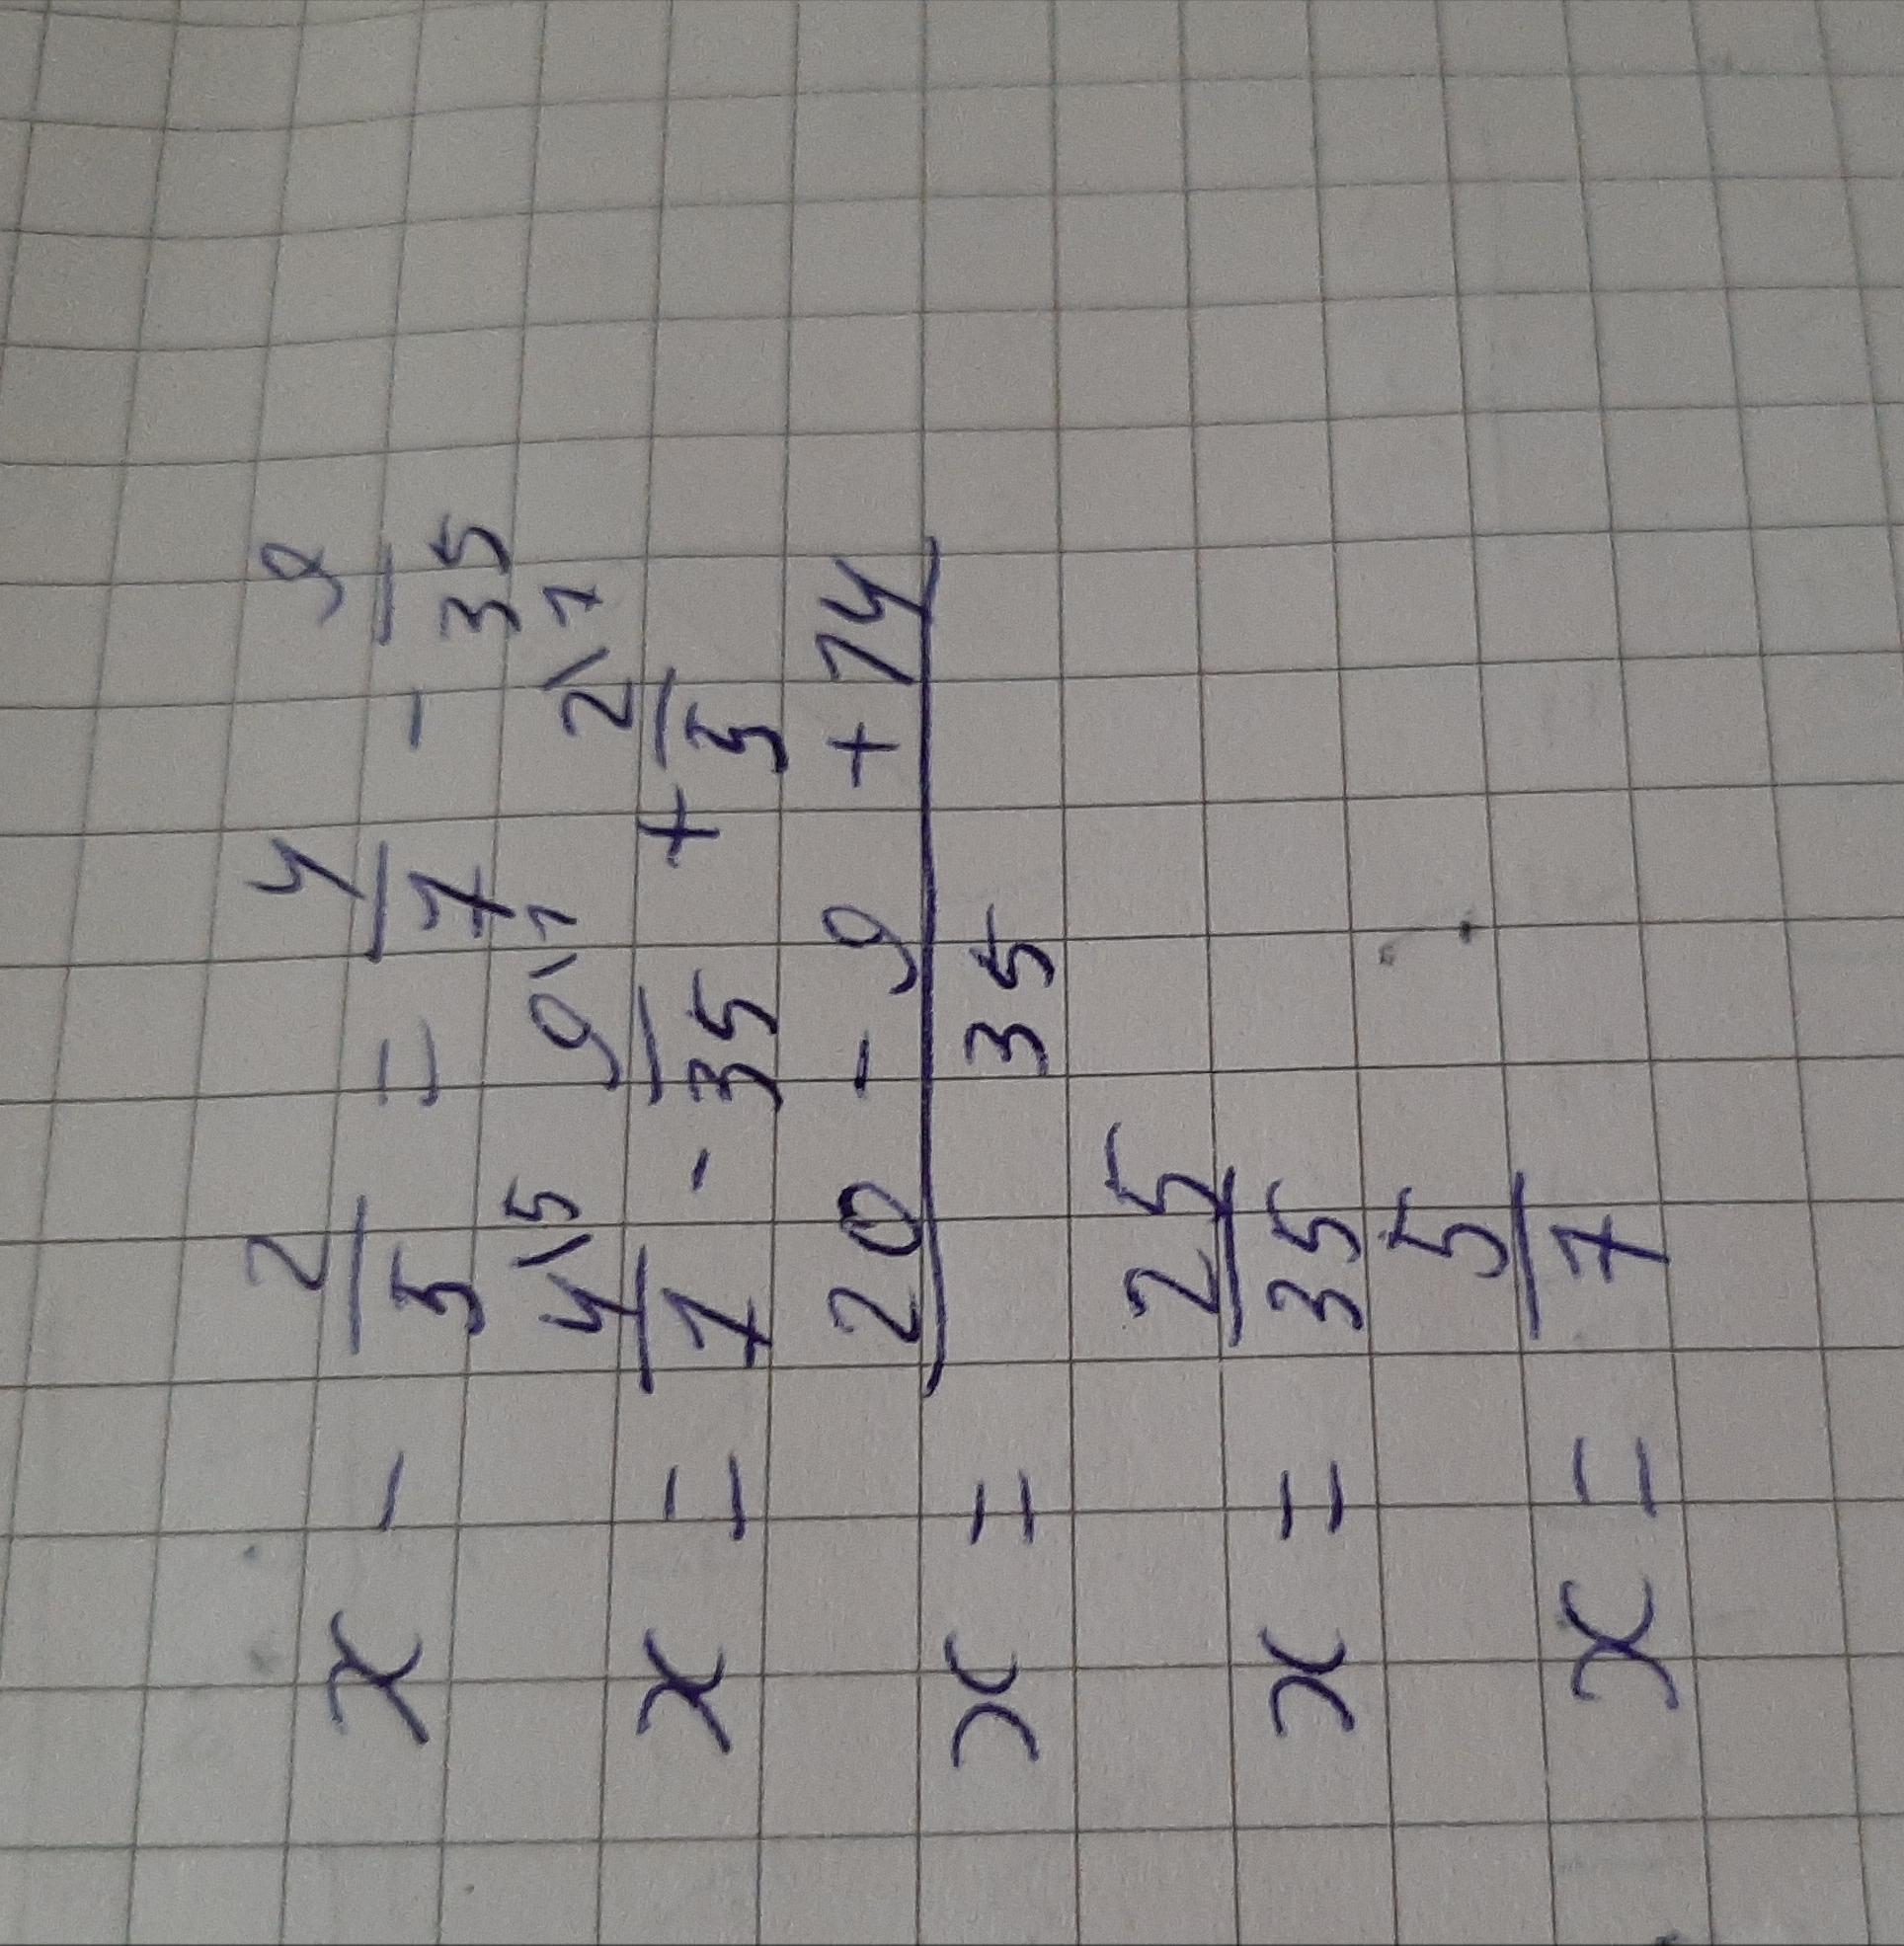 x - 2/5 = 4/7 - 9/35
x = 4\5/7 - 9\1/35 + 2\7/5
x = 20 - 9 + 14/35
x = 25/35
x = 5/7